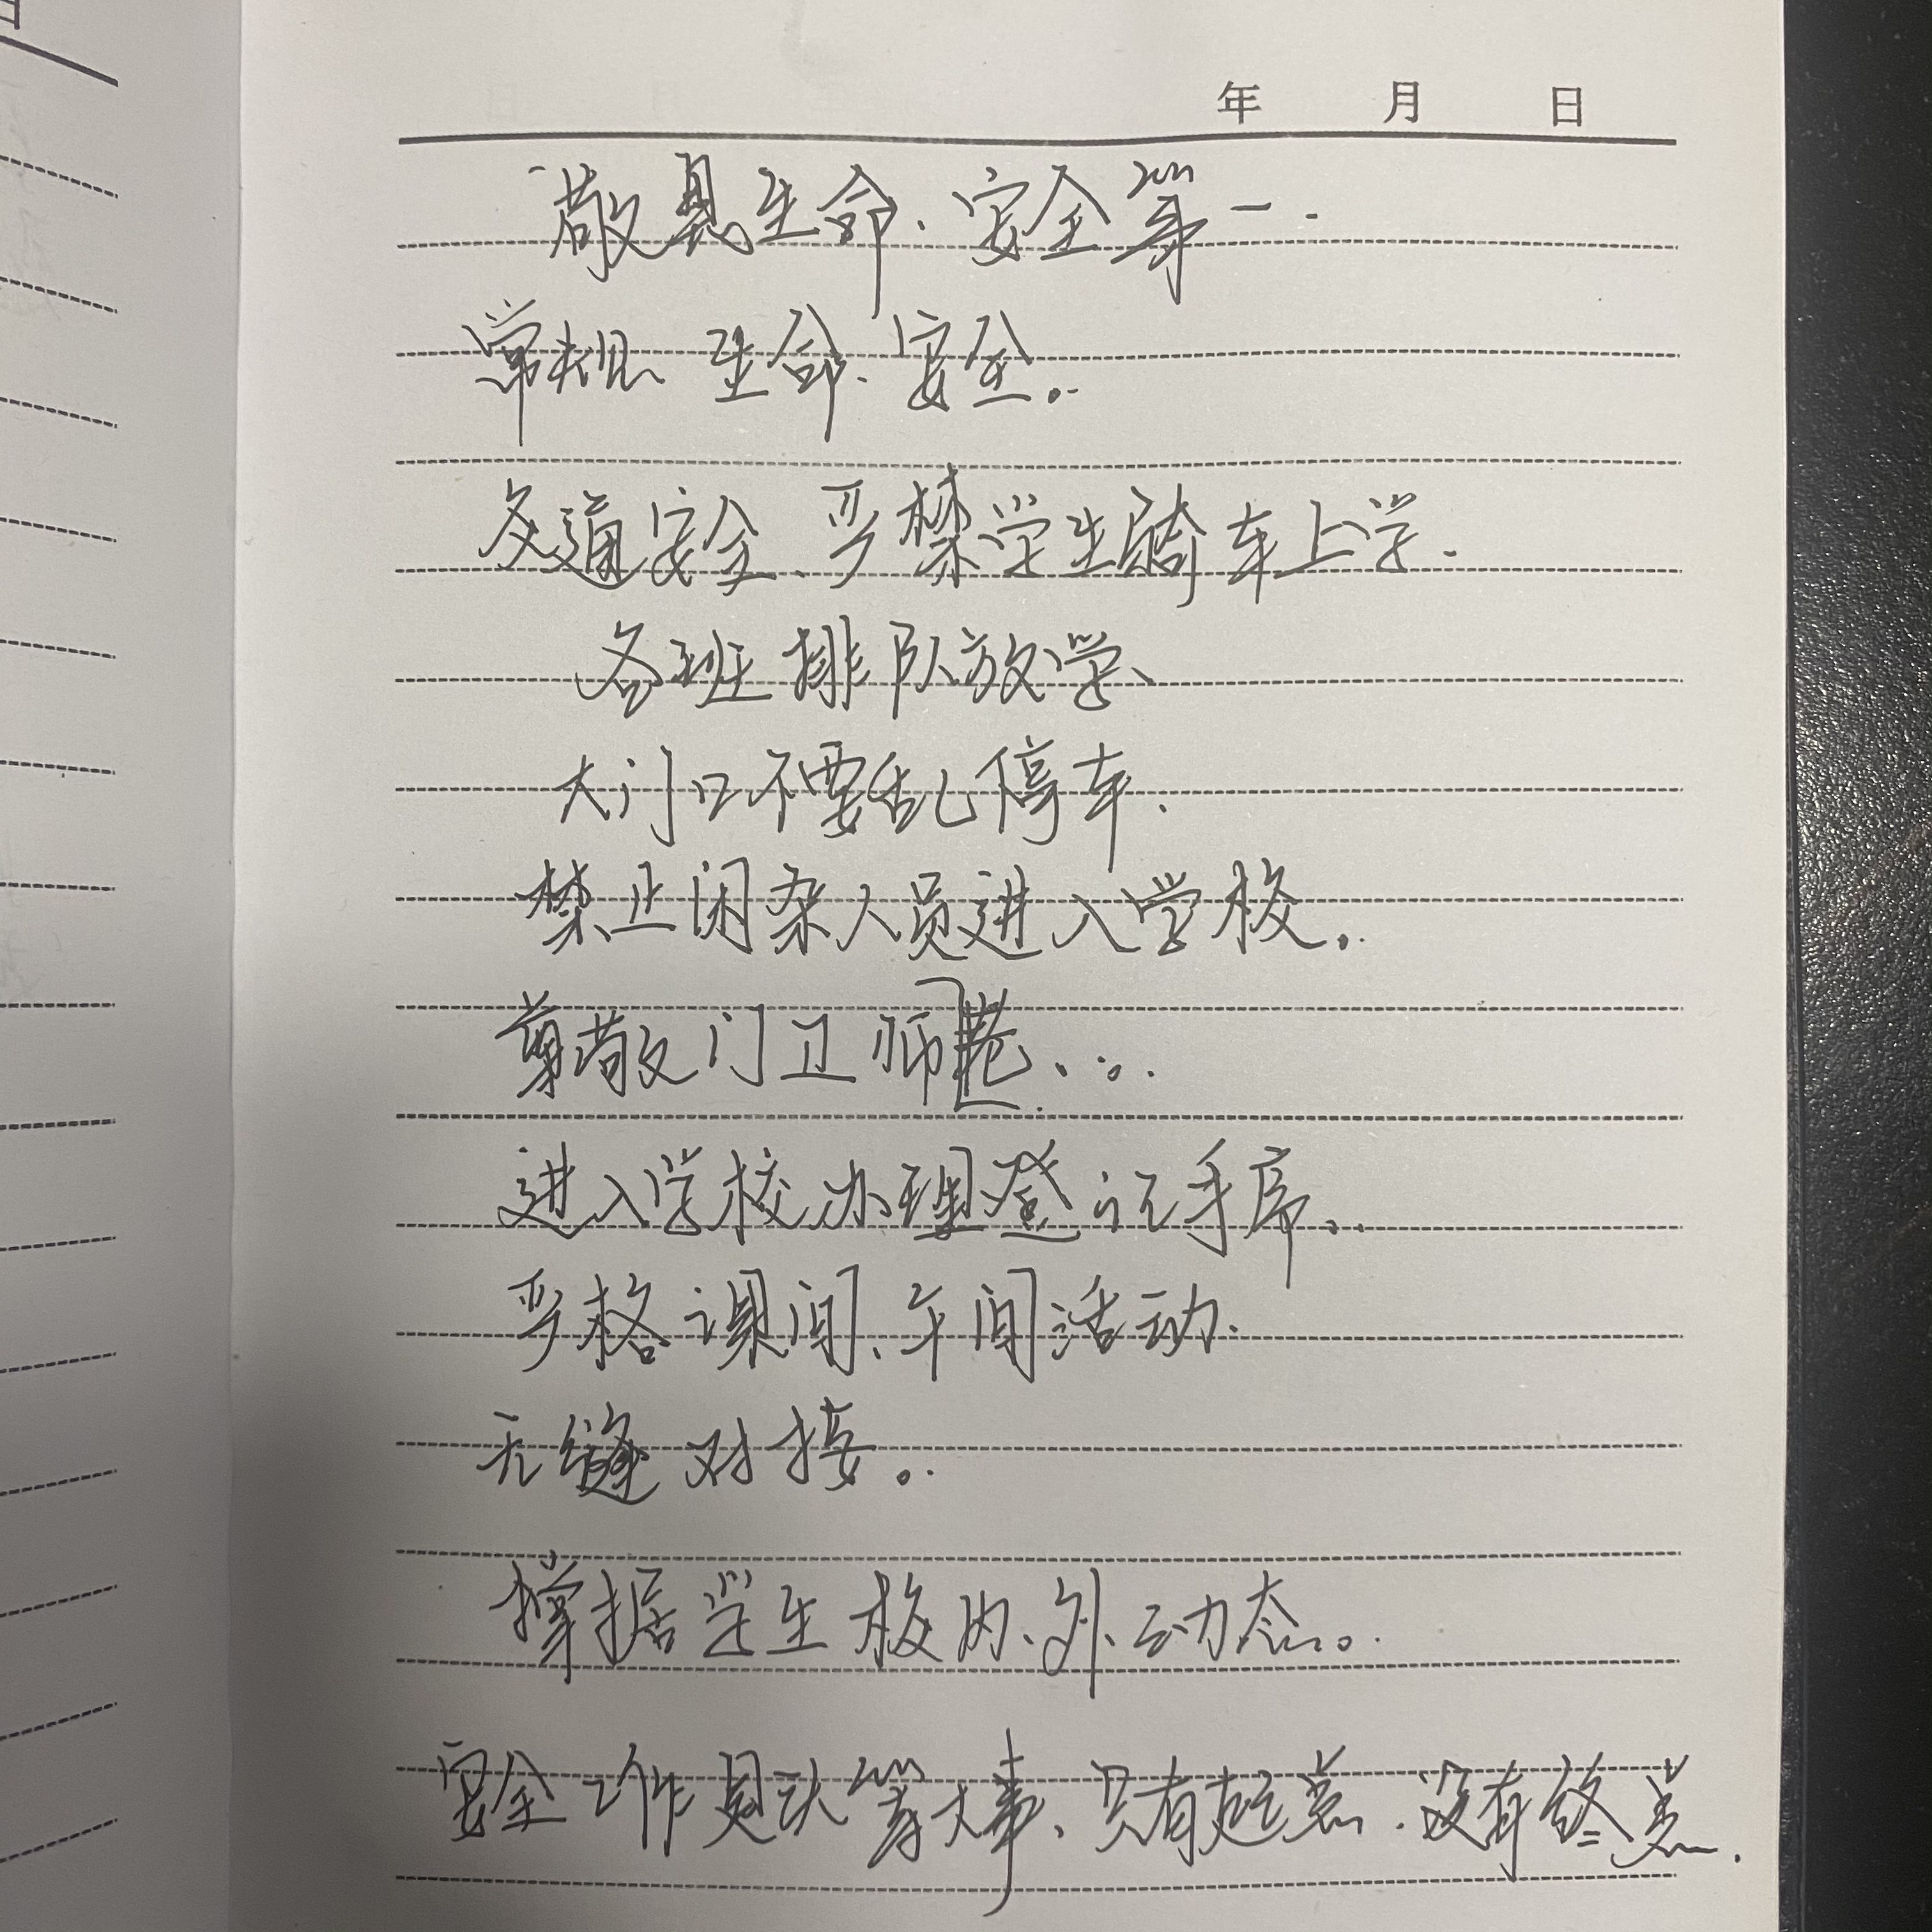 年 月 日
敬畏生命、安全第一.
常规 生命、安全。
交通安全、严禁学生骑车上学.
各班排队放学、
大门口不要乱停车.
禁止闲杂人员进入学校。
尊敬门卫师
进入学校办理登记手序.
严格课间、午间活动.
无缝对接。
掌据学生校内、外动态。
安全工作是头等大事、只有起点.没有终点.